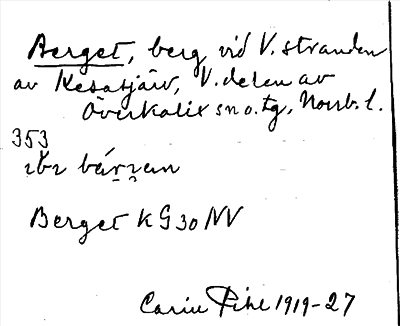 Berget, berg vid V. stranden
av Kesasjärv, V. delen av
Överkalix sn o. tg, Norrb. l.
353
Berget KG 30 NV
Carin Pihl 1919-27